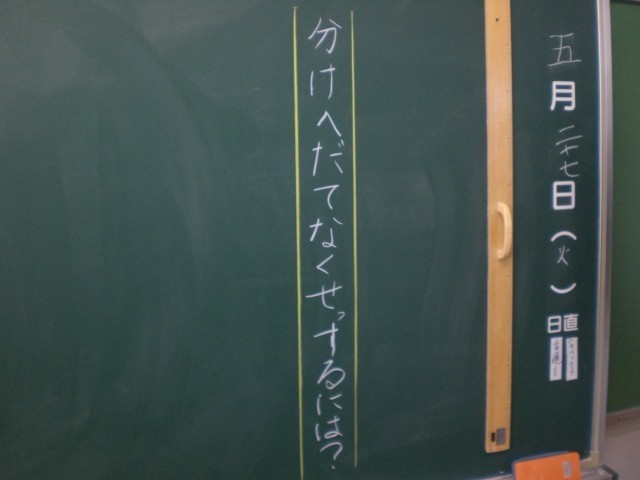 五月二十七日(火)
日直
分けへだてなくせっするには?